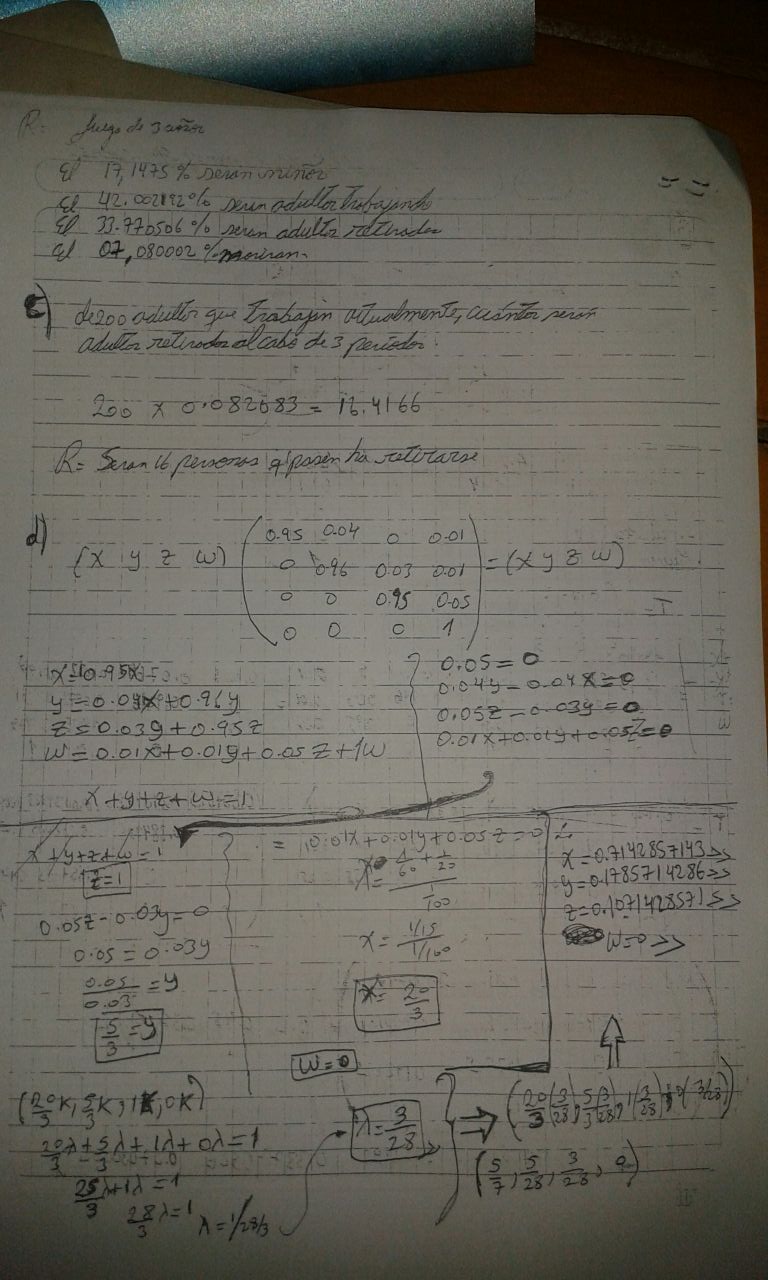 R= Luego de 3 años
El 17,1475 % seran niños
El 42.002192% seran adultos trabajando
El 33.770506 % seran adultos retirados
El 07,080002 % moriran.
c) de 200 adultos que trabajan actualmente, cuántos serán
adultos retirados al cabo de 3 periodos.
200 x 0.082083 = 16.4166
R= Seran 16 personas q' pasen ha retirarse
d) (x y z w) ( 0.95 0.04 0 0.01
0 0.96 0.03 0.01
0 0 0.95 0.05
0 0 0 1 ) = (x y z w)
x = 0.95x
y = 0.04x + 0.96y
z = 0.03y + 0.95z
w = 0.01x + 0.01y + 0.05z + 1w
x + y + z + w = 1
0.05 = 0
0.04y - 0.04x = 0
0.05z - 0.03y = 0
0.01x + 0.01y + 0.05z = 0
x + y + z + w = 1
z = 1
0.05z - 0.03y = 0
0.05 = 0.03y
0.05/0.03 = y
5/3 = y
= 0.01x + 0.01y + 0.05z = 0
x = 1/60 + 1/20
1/100
x = 1/15
1/100
x = 20/3
w = 0
x = 0.7142857143 >>
y = 0.1785714286 >>
z = 0.1071428571 >>
w = 0 >>
(20/3 K, 5/3 K, 1K, 0K)
20/3 λ + 5/3 λ + 1λ + 0λ = 1
25/3 λ + 1λ = 1
28/3 λ = 1 λ = 1/28/3
λ = 3/28
(20/3 (3/28), 5/3 (3/28), 1 (3/28), 0 (3/28))
(5/7, 5/28, 3/28, 0)